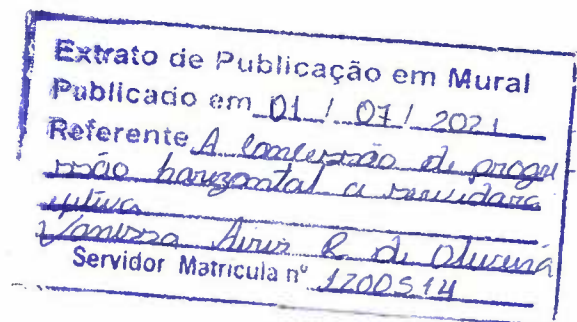 Extrato de Publicação em Mural
Publicado em 01 / 07 / 2021
Referente A concessão de progre
ssão horizontal a servidora
efetiva
Vanessa Aires R de Oliveira
Servidor Matricula nº 1200514